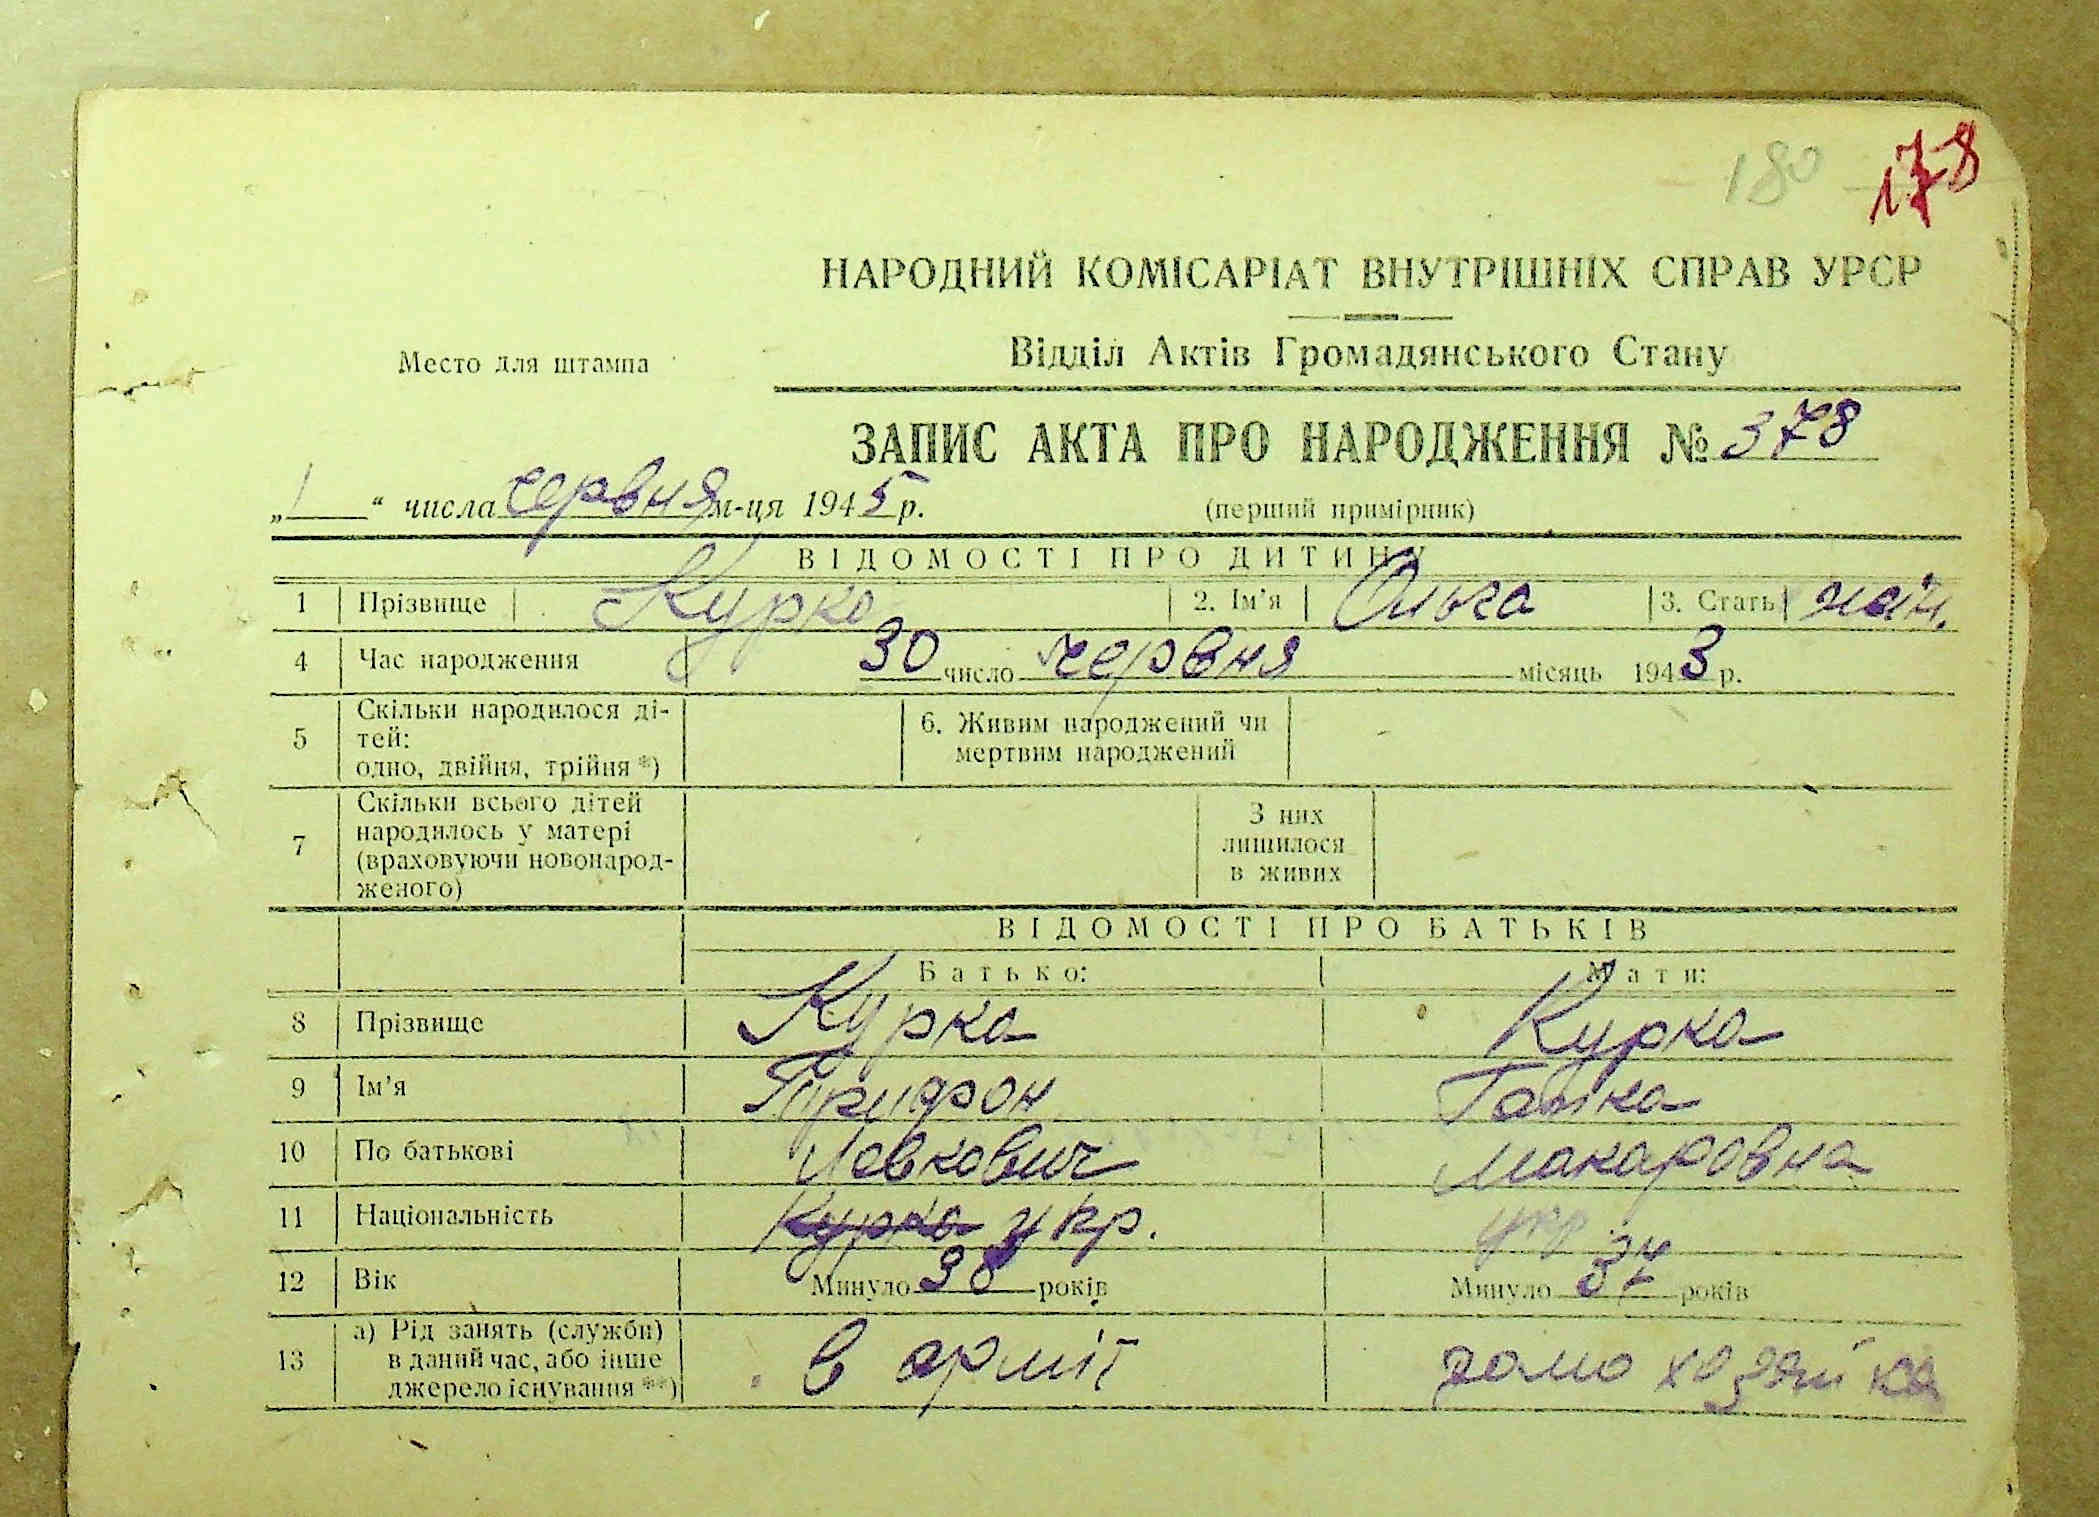 180 178
НАРОДНИЙ КОМІСАРІАТ ВНУТРІШНІХ СПРАВ УРСР
Место для штампа
Відділ Актів Громадянського Стану
ЗАПИС АКТА ПРО НАРОДЖЕННЯ № 378
„1“ числа червня м-ця 1945 р. (перший примірник)
ВІДОМОСТІ ПРО ДИТИНУ
1 Прізвище Курко 2. Ім'я Ольга 3. Стать
4 Час народження 30 число червня місяць 1943 р.
5 Скільки народилося ді-
тей:
одно, двійня, трійня *)
6. Живим народжений чи
мертвим народжений
7 Скільки всього дітей
народилось у матері
(враховуючи новонарод-
женого)
З них
лишилося
в живих
ВІДОМОСТІ ПРО БАТЬКІВ
Батько: Мати:
8 Прізвище Курка Курка
9 Ім'я Трифон Гапка
10 По батькові Левкович Макаровна
11 Національність Курка укр. укр.
12 Вік Минуло 38 років Минуло 37 років
13 а) Рід занять (служби)
в даний час, або інше
джерело існування **)
в армії домохозяйка